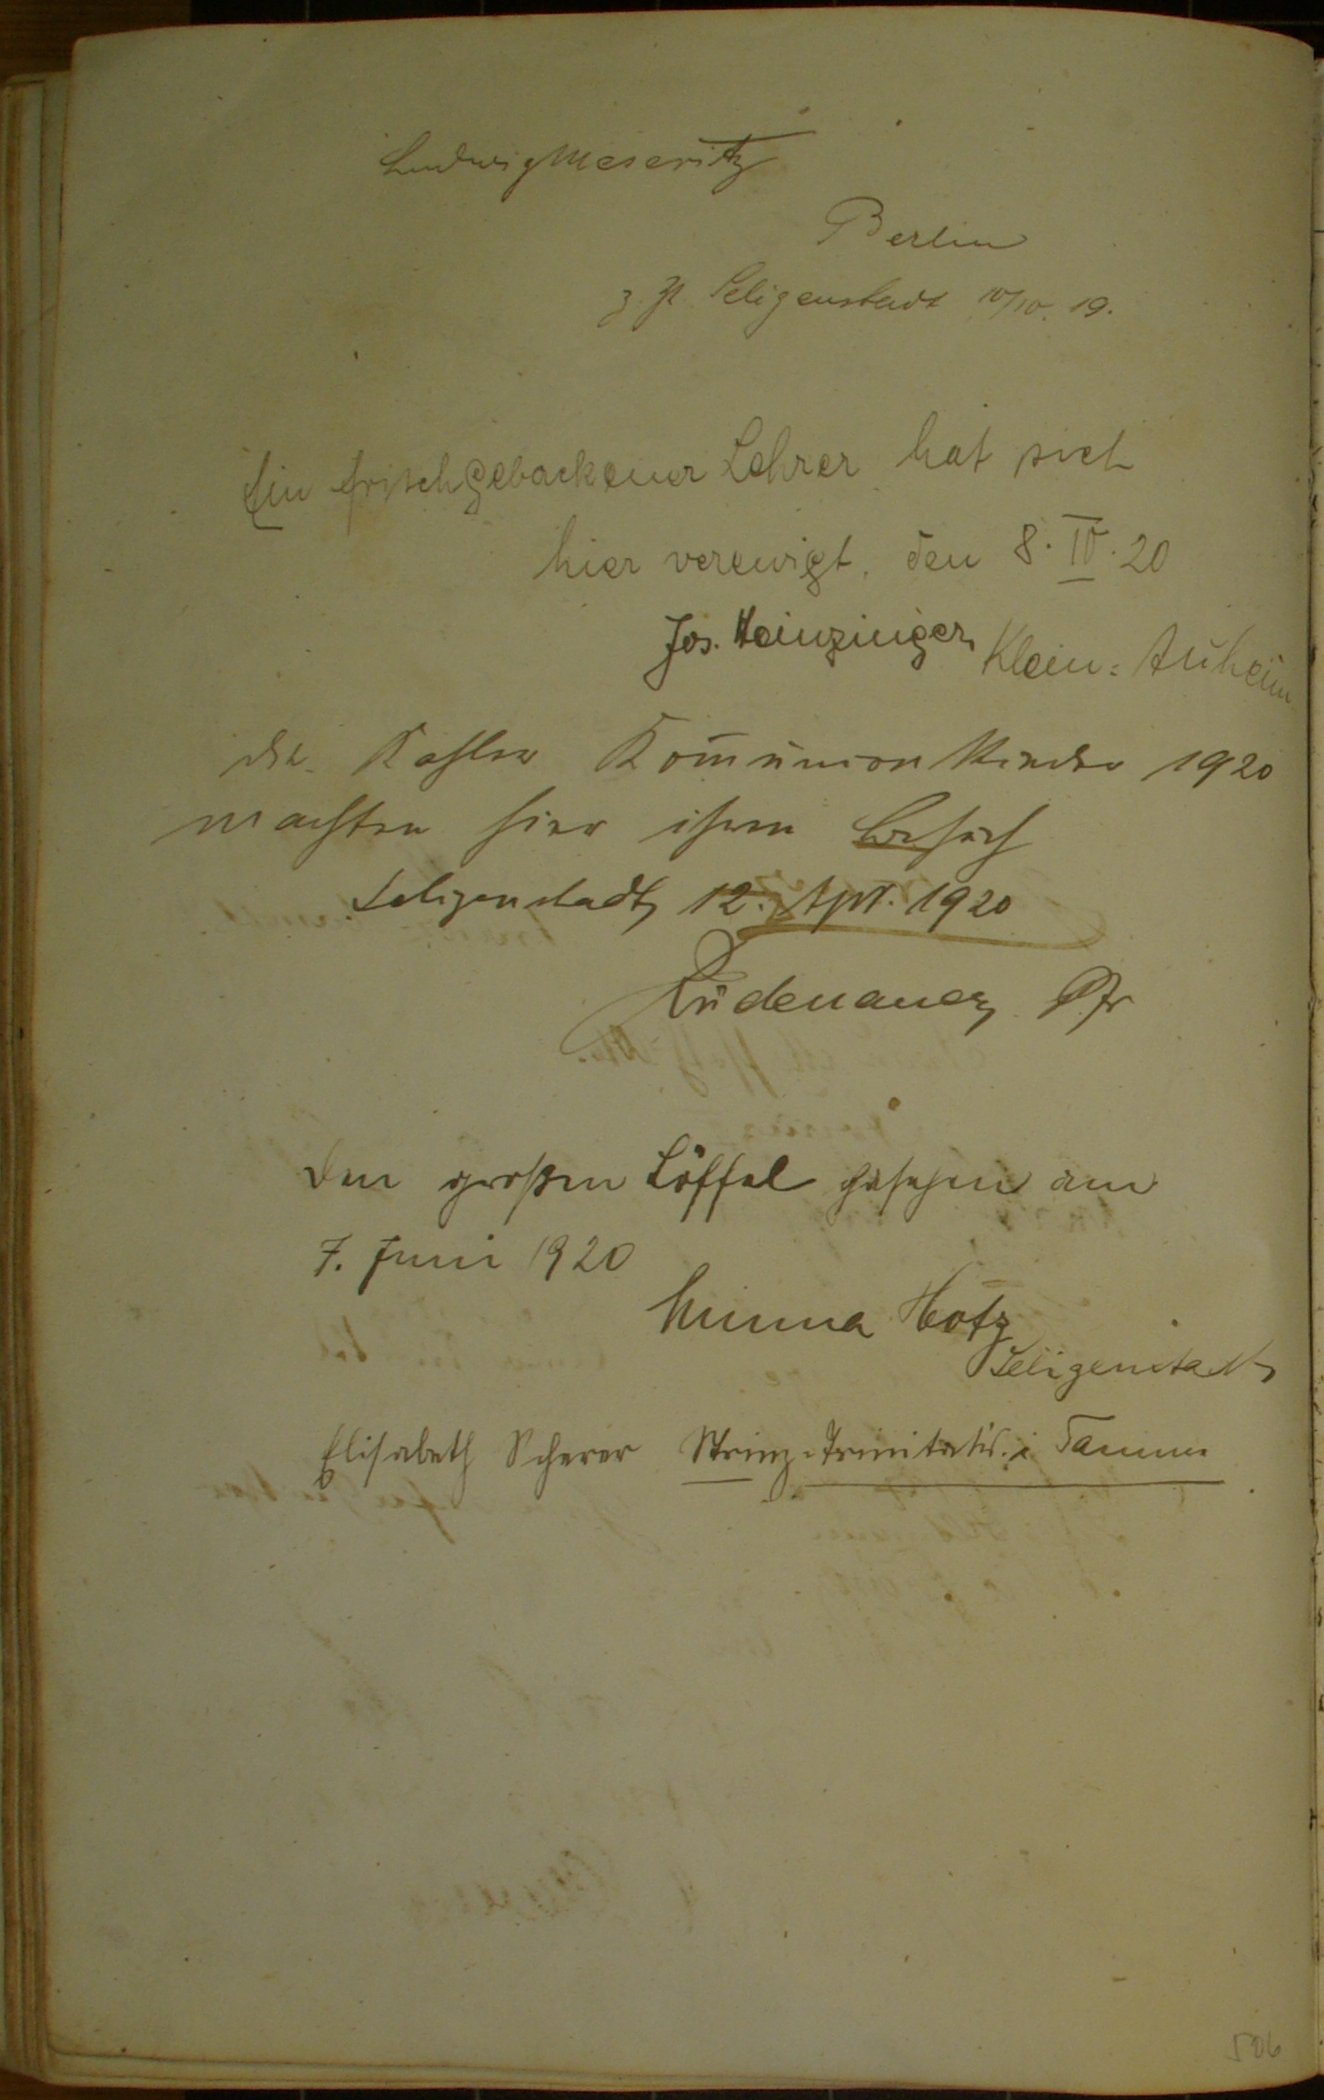 Ludwig Meseritz
Berlin
z. Zt. Seligenstadt 10/10. 19.
Ein frischgebackener Lehrer hat sich
hier verewigt, den 8. IV. 20
Jos. Heinzinger, Klein-Auheim
Die Kahler Kommunionkinder 1920
machten hier ihren Besuch
Seligenstadt, 12. Apr. 1920
Rüdenauer, Pfr
Den großen Löffel gesehen am
7. Juni 1920
Minna Hotz
Seligenstadt
Elisabeth Scherer Strinz-Trinitatis. i Taunus
506